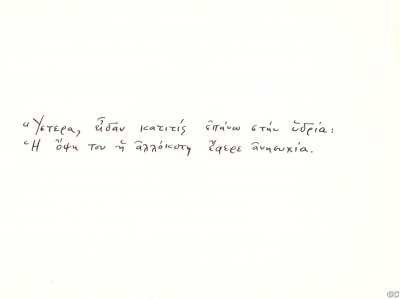 Ὕστερα, εἶδαν κατιτίς ἐπάνω στήν ὑδρία:
Ἡ ὄψη του ἡ ἀλλόκοτη ἔφερε ἀνησυχία.
©C